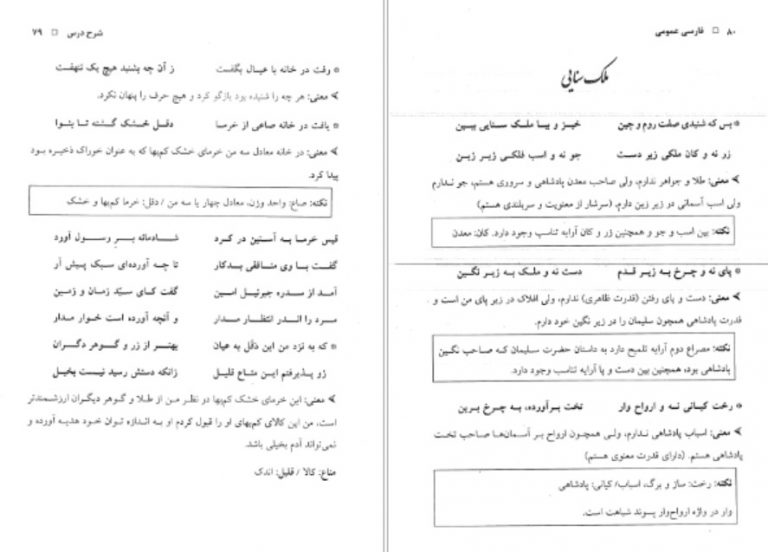 ۷۹ □ شرح درس
* رفت در خانه با عیال بگفت ز آن چه بشنید هیچ یک ننهفت
معنی: هر چه را شنیده بود بازگو کرد و هیچ حرف را پنهان نکرد.
* یافت در خانه صاعی از خرما دقل خشک گشته تا بنوا
معنی: در خانه معادل سه من خرمای خشک کم‌بها که به عنوان خوراک ذخیره بود
پیدا کرد.
نکته: صاع: واحد وزن، معادل چهار یا سه من / دقل: خرما کم‌بها و خشک
قیس خرما به آستین در کرد شادمانه بر رسول آورد
گفت با وی منافقی بدکار تا چه آورده‌ای سبک پیش آر
آمد از سدره جبرئیل امین گفت کای سیّد زمان و زمین
مرد را اندر انتظار مدار و آنچه آورده است خوار مدار
* که به نزد من این دقل به عیان بهتر از زر و گوهر دگران
زو پذیرفتم این متاع قلیل زانکه دستش رسید نیست بخیل
معنی: این خرمای خشک کم‌بها در نظر من از طلا و گوهر دیگران ارزشمندتر
است، من این کالای کم‌بهای او را قبول کردم او به اندازه توان خود هدیه آورده و
نمی‌تواند آدم بخیلی باشد.
متاع: کالا / قلیل: اندک
۸۰ □ فارسی عمومی
ملک سنایی
* بس که شنیدی صفت روم و چین خیز و بیا ملک سنایی ببین
زر نه و کان ملکی زیر دست جو نه و اسب فلکی زیر زین
معنی: طلا و جواهر ندارم، ولی صاحب معدن پادشاهی و سروری هستم، جو ندارم
ولی اسب آسمانی در زیر زین دارم. (سرشار از معنویت و سربلندی هستم)
نکته: بین اسب و جو و همچنین زر و کان آرایه تناسب وجود دارد. کان: معدن
* پای نه و چرخ به زیر قدم دست نه و ملک به زیر نگین
معنی: دست و پای رفتن (قدرت ظاهری) ندارم، ولی افلاک در زیر پای من است و
قدرت پادشاهی همچون سلیمان را در زیر نگین خود دارم.
نکته: مصراع دوم آرایه تلمیح دارد به داستان حضرت سلیمان که صاحب نگین
پادشاهی بود، همچنین بین دست و پا آرایه تناسب وجود دارد.
* رخت کیانی نه و ارواح وار تخت برآورده، به چرخ برین
معنی: اسباب پادشاهی ندارم، ولی همچون ارواح بر آسمان‌ها صاحب تخت
پادشاهی هستم. (دارای قدرت معنوی هستم)
نکته: رخت: ساز و برگ، اسباب/ کیانی: پادشاهی
وار در واژه ارواح‌وار پسوند شباهت است.